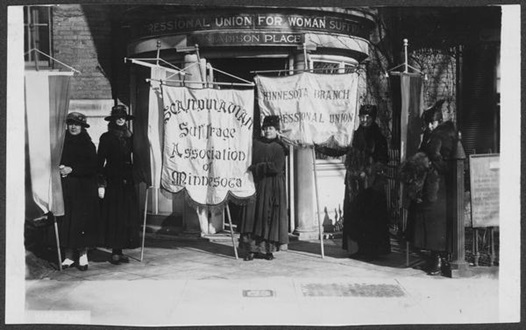 RESSIONAL UNION FOR WOMAN SUFF
MADISON PLACE
SCANDINAVIAN
Suffrage
Association
of
Minnesota
MINNESOTA BRANCH
RESSIONAL UNION